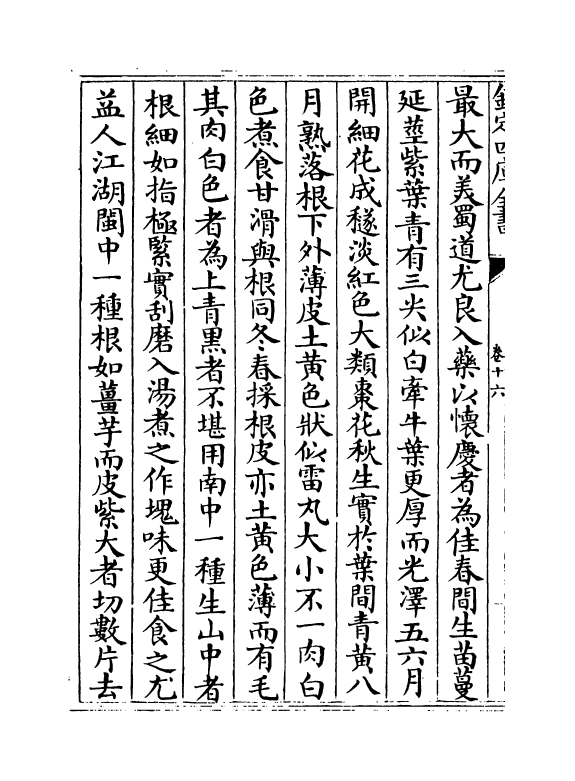 欽定四庫全書
卷十六
最大而美蜀道尤良入藥以懷慶者為佳春間生苗蔓
延莖紫葉青有三尖似白牽牛葉更厚而光澤五六月
開細花成穟淡紅色大類棗花秋生實於葉間青黃八
月熟落根下外薄皮土黃色狀似雷丸大小不一肉白
色煮食甘滑與根同冬春採根皮亦土黃色薄而有毛
其肉白色者為上青黑者不堪用南中一種生山中者
根細如指極緊實刮磨入湯煮之作塊味更佳食之尤
益人江湖閩中一種根如薑芋而皮紫大者切數片去